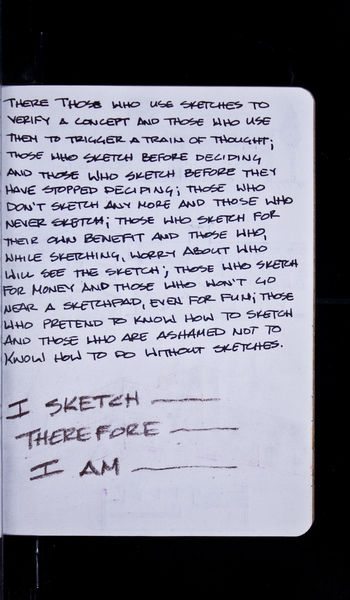 THERE THOSE WHO USE SKETCHES TO
VERIFY A CONCEPT AND THOSE WHO USE
THEM TO TRIGGER A TRAIN OF THOUGHT;
THOSE WHO SKETCH BEFORE DECIDING
AND THOSE WHO SKETCH BEFORE THEY
HAVE STOPPED DECIDING; THOSE WHO
DON'T SKETCH ANY MORE AND THOSE WHO
NEVER SKETCH; THOSE WHO SKETCH FOR
THEIR OWN BENEFIT AND THOSE WHO,
WHILE SKETCHING, WORRY ABOUT WHO
WILL SEE THE SKETCH; THOSE WHO SKETCH
FOR MONEY AND THOSE WHO WON'T GO
NEAR A SKETCHPAD, EVEN FOR FUN; THOSE
WHO PRETEND TO KNOW HOW TO SKETCH
AND THOSE WHO ARE ASHAMED NOT TO
KNOW HOW TO DO WITHOUT SKETCHES.
I SKETCH —
THEREFORE —
I AM —